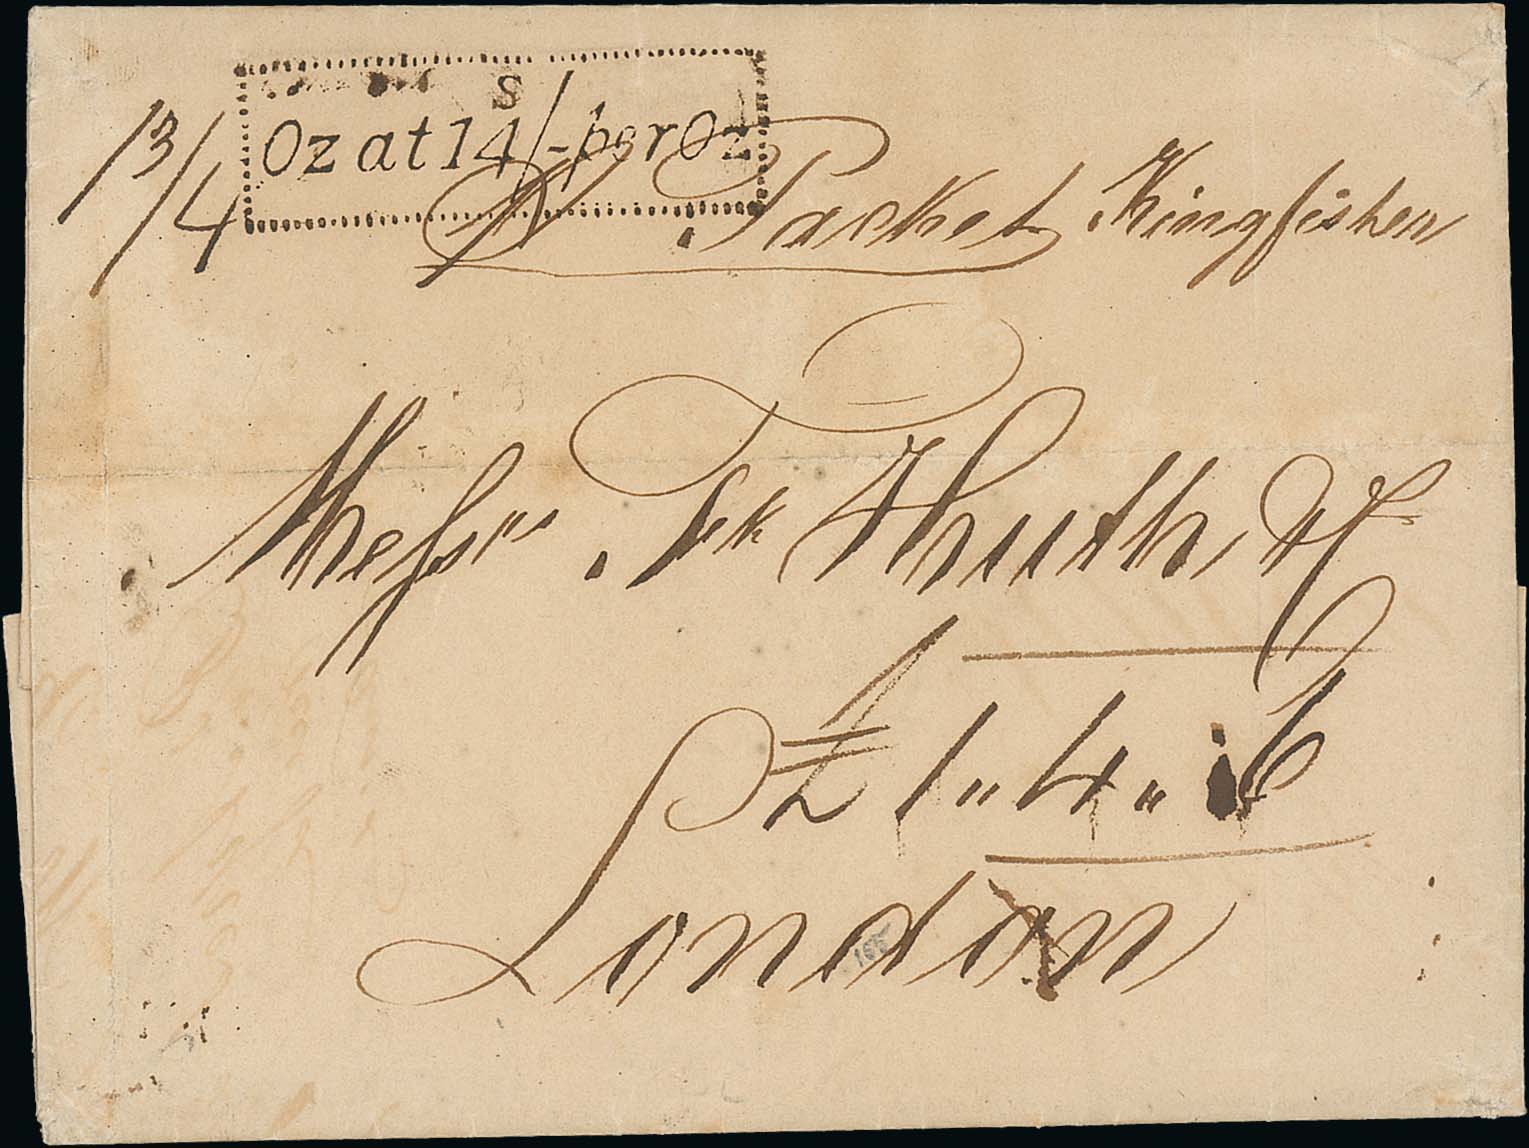 S
13/4 Oz at 14/- per Oz
Packet Kingfisher
Messrs Fk Huth &
1 " 4 " 6
London